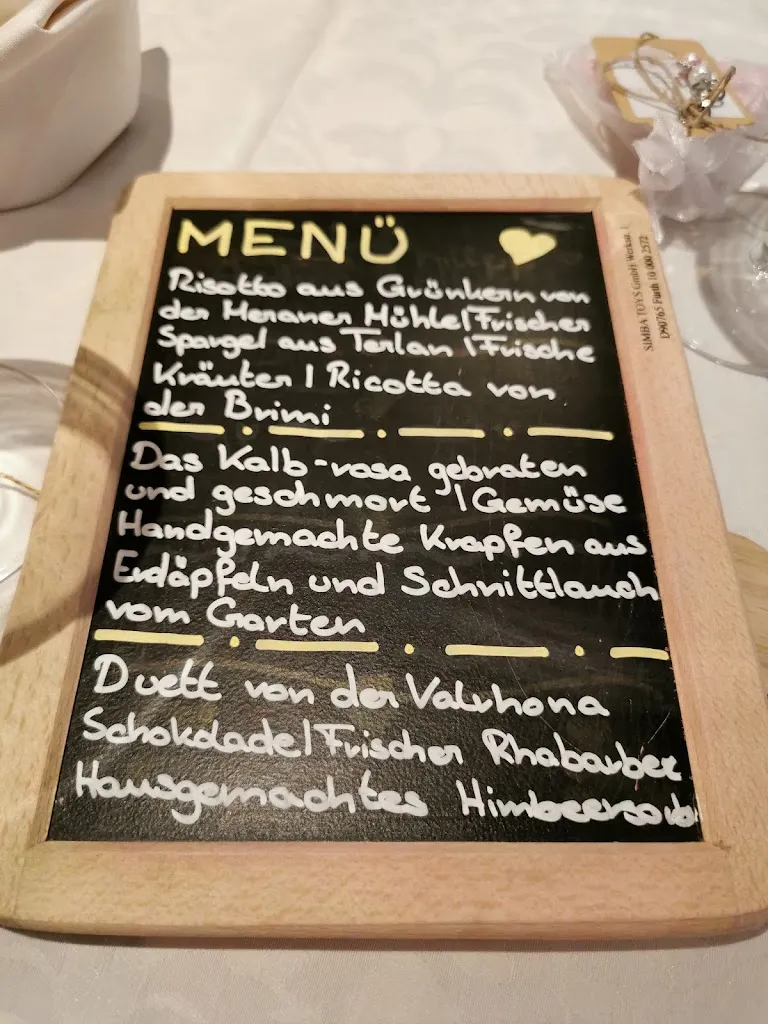 MENÜ
Risotto aus Grünkern von
der Meraner Mühle | Frischer
Spargel aus Terlan | Frische
Kräuter | Ricotta von
der Brimi
Das Kalb-rosa gebraten
und geschmort | Gemüse
Handgemachte Krapfen aus
Erdäpfeln und Schnittlauch
vom Garten
Duett von der Valrhona
Schokdadel | Frischer Rhabarber
Hausgemachtes Himbeersorb
SIMBA TOYS GmbH Werkstr. 1
D90765 Fürth 10 000 2572